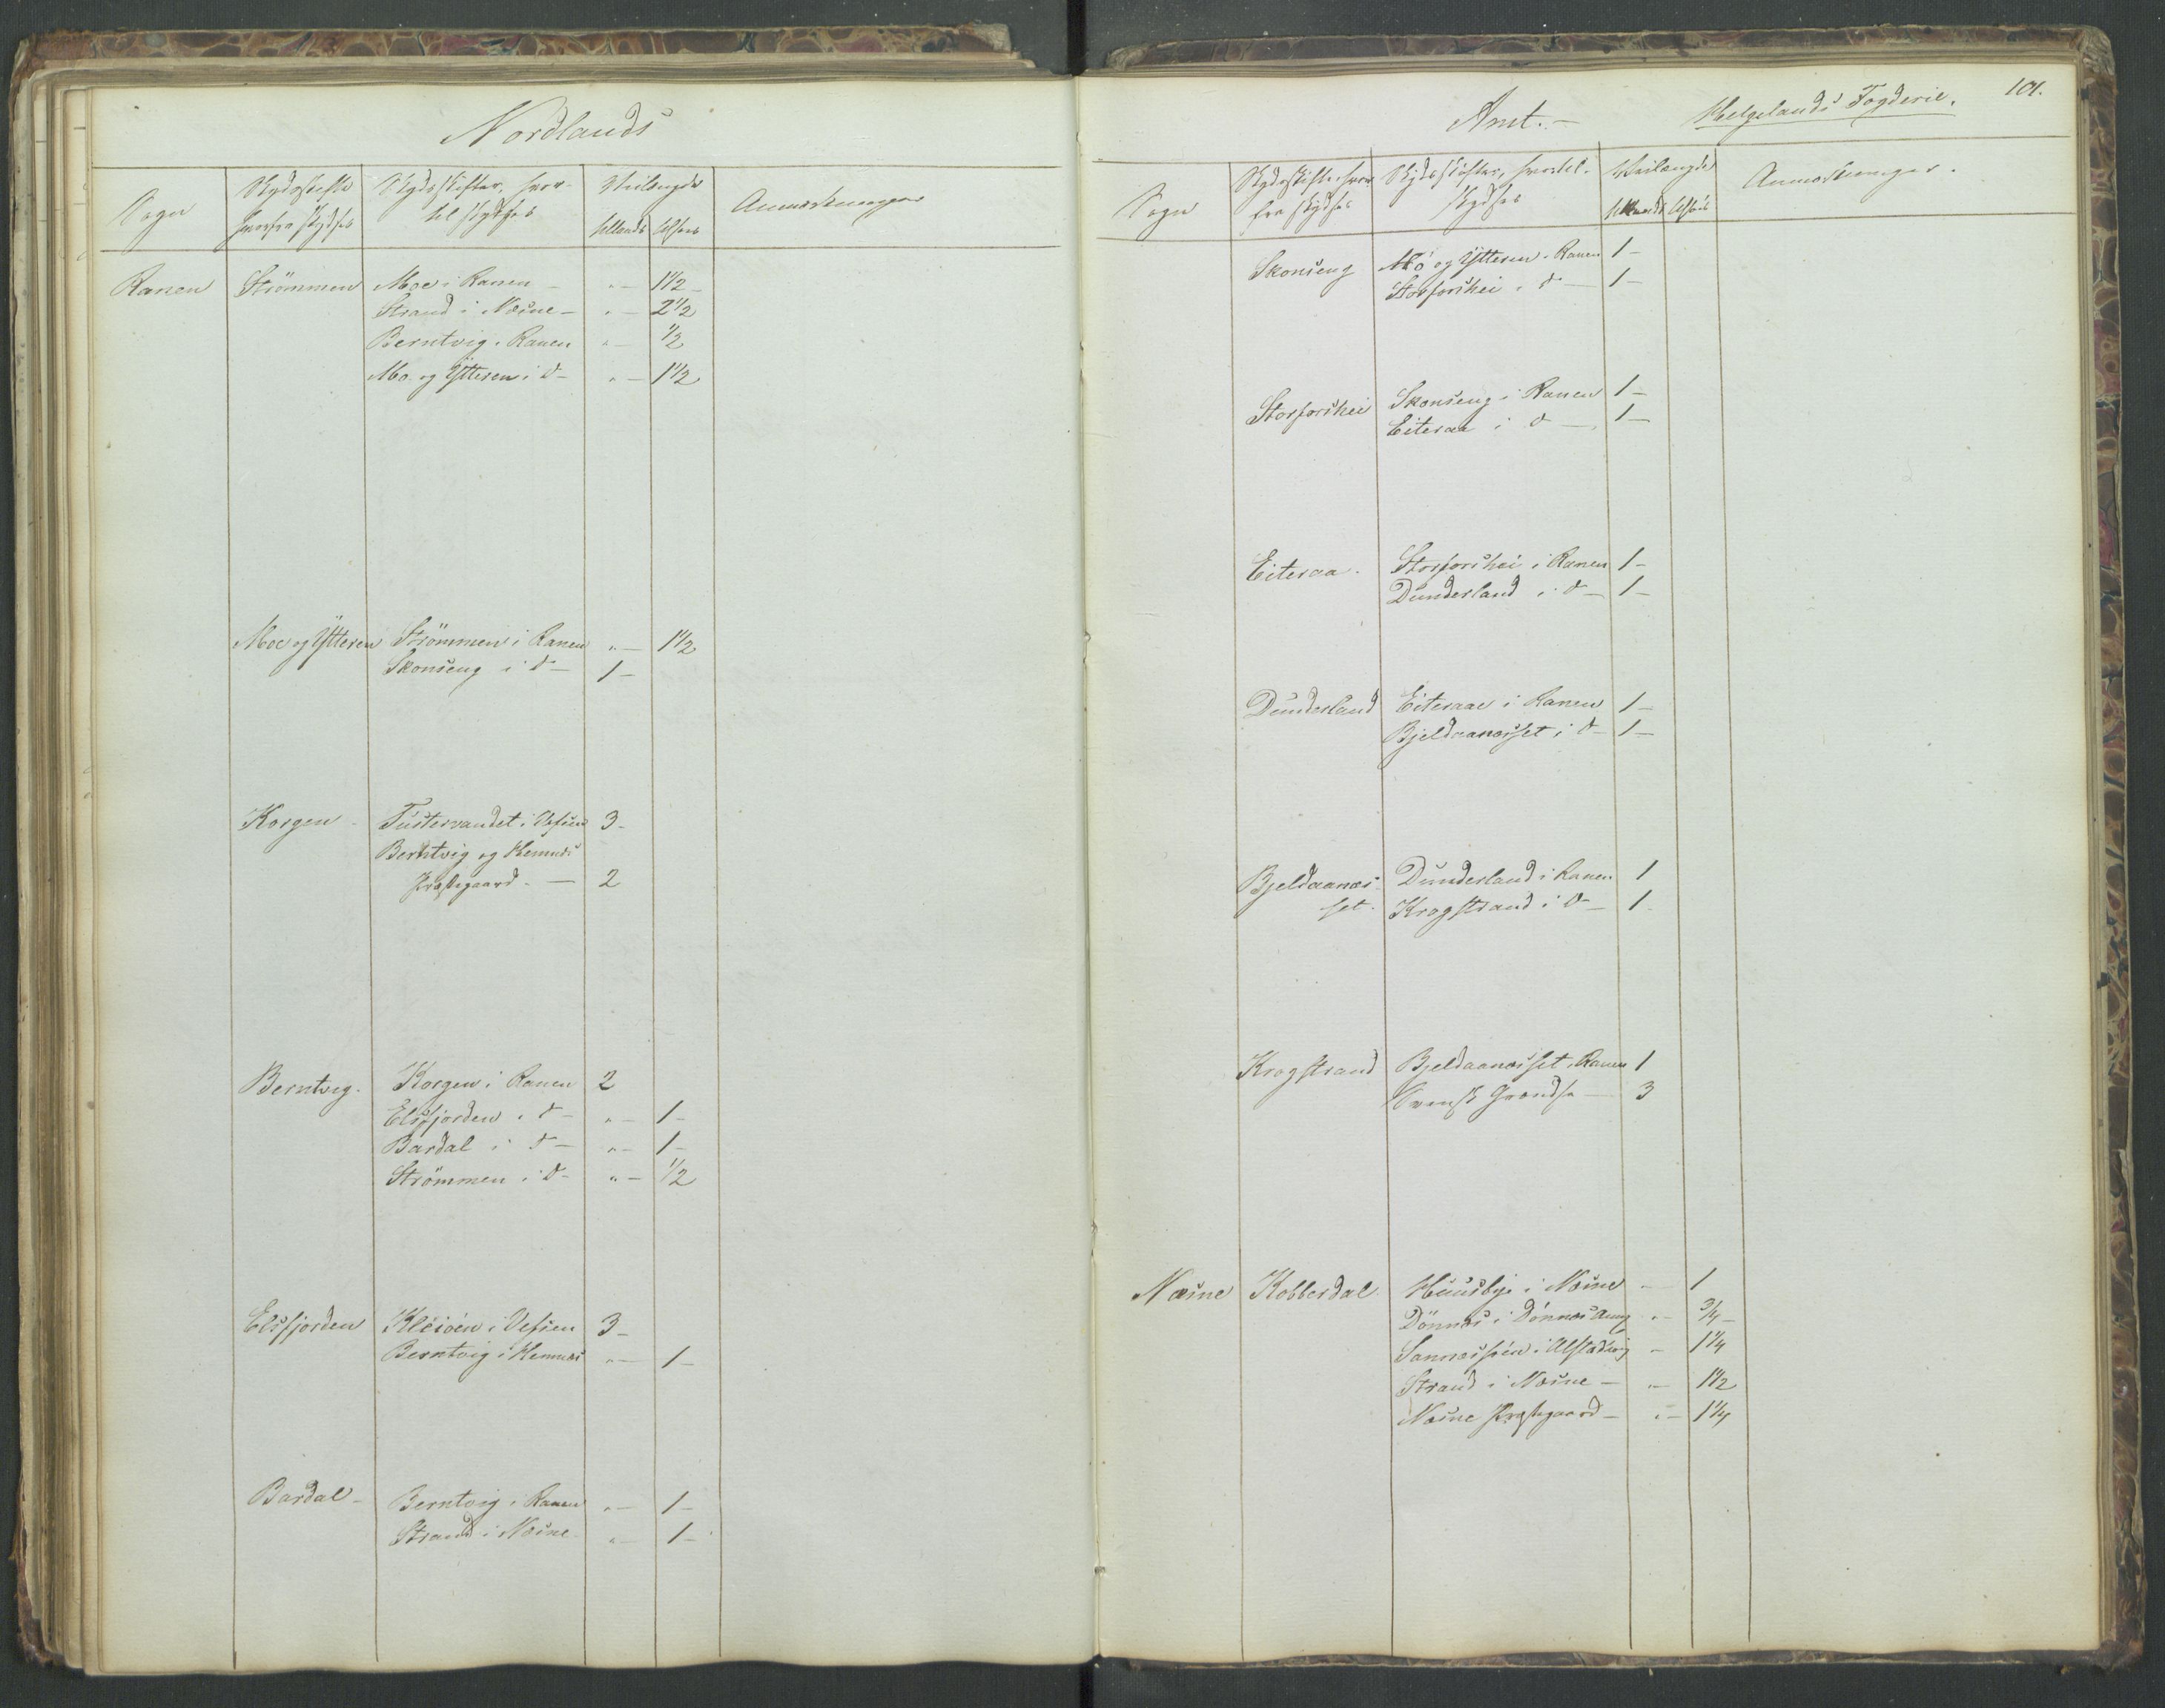 Nordlands
Sogn | Skydsskifte hvorfra skydses | Skydsskifter, hvortil skydses | Veilængde tillands | tilsøes | Anmærkninger
Ranen | Strömmen | Moe i Ranen – | " – | 1½ –
Strand i Næsne – | " – | 2½
Berntvig i Ranen | " – | ½
Mo og Ytteren i d – | " – | 1½
Moe og Ytteren | Strömmen i Ranen | " – | 1½
Skonseng i d – | 1 –
Korgen – | Tustervandet i Vefsen | 3 –
Berntvig og Hemnæs
Præstegaard – | 2
Berntvig. | Korgen i Ranen | 2
Elsfjorden i d – | " – | 1 –
Bardal i d – | " – | 1 –
Strömmen i d – | " – | ½
Elsfjorden | Kleiöen i Vefsen | 3 –
Berntvig i Hemnæs | " – | 1 –
Bardal – | Berntvig i Ranen | " – | 1 –
Strand i Næsne | " – | 1 –
Amt. –
Helgelands Fogderie.
101.
Sogn | Skydsskifte hvorfra skydses | Skydsskifter, hvortil skydses | Veilængde tillands | tilsøes | Anmærkninger.
Skonseng | Mo og Ytteren i Ranen | 1 –
Storforshei i d – | 1 –
Storforshei | Skonseng i Ranen | 1 –
Eiteraa i d – | 1 –
Eiteraa. | Storforshei i Ranen | 1 –
Dunderland i d – | 1 –
Dunderland | Eiteraae i Ranen | 1 –
Bjeldaanæsset i d – | 1 –
Bjeldaanæs- | Dunderland i Ranen | 1
set. | Krogstrand i d – | 1 –
Krogstrand | Bjeldaanæsset i Ranen | 1
Svensk Grændse – | 3
Næsne | Kobberdal | Huusbye i Næsne | – | 1
Dönnæs i Dönnæs | " – | ¾ –
Sannæssöen i | – | 1¼
Strand i Næsne – | " – | 1½
Næsne Præstegaard – | " – | 1¼